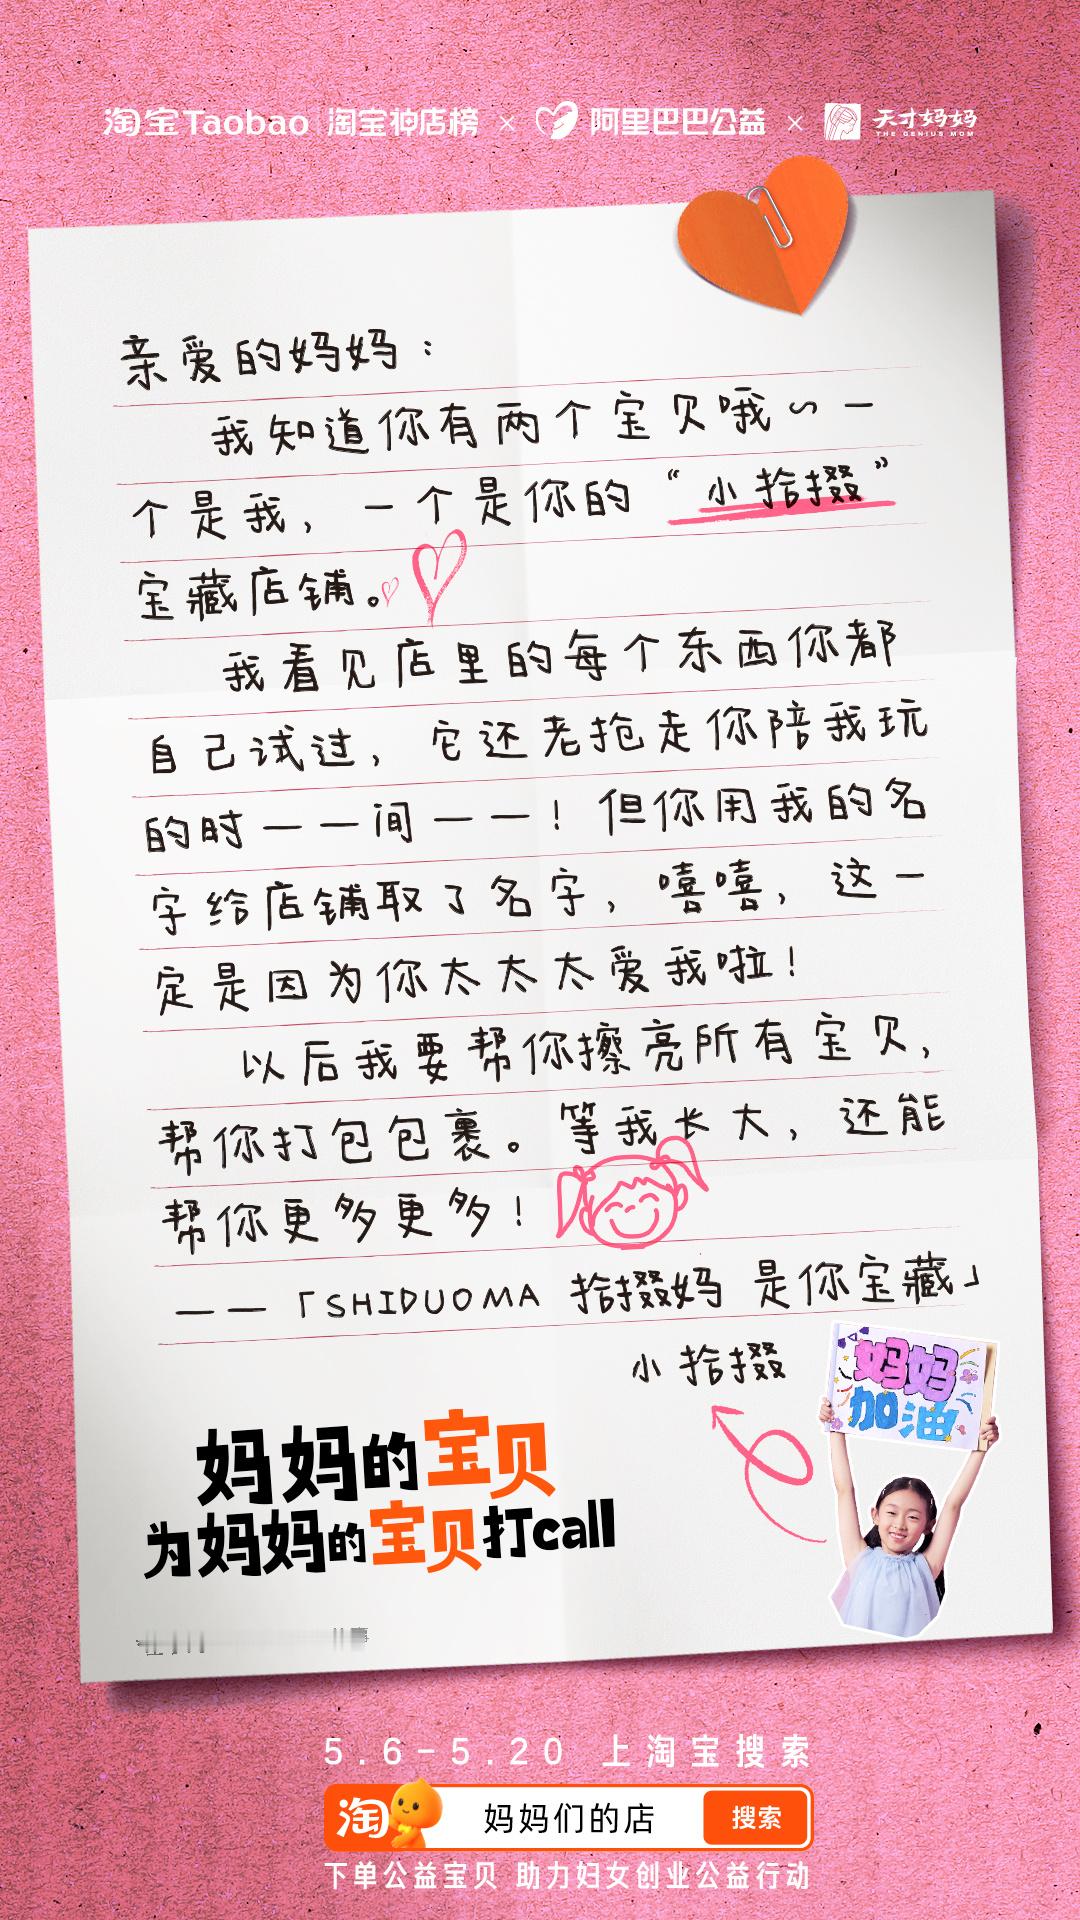 淘宝Taobao 淘宝神店榜 × 阿里巴巴公益 × 天才妈妈
THE GENIUS MOM
亲爱的妈妈：
我知道你有两个宝贝哦~一
个是我，一个是你的“小拾掇”
宝藏店铺。
我看见店里的每个东西你都
自己试过，它还老抢走你陪我玩
的时——间——！但你用我的名
字给店铺取了名字，嘻嘻，这一
定是因为你太太太爱我啦！
以后我要帮你擦亮所有宝贝，
帮你打包包裹。等我长大，还能
帮你更多更多！
——「SHIDUOMA 拾掇妈 是你宝藏」
小拾掇
妈妈
加油
妈妈的宝贝
为妈妈的宝贝打call
5.6-5.20 上淘宝搜索
淘 妈妈们的店 搜索
下单公益宝贝 助力妇女创业公益行动